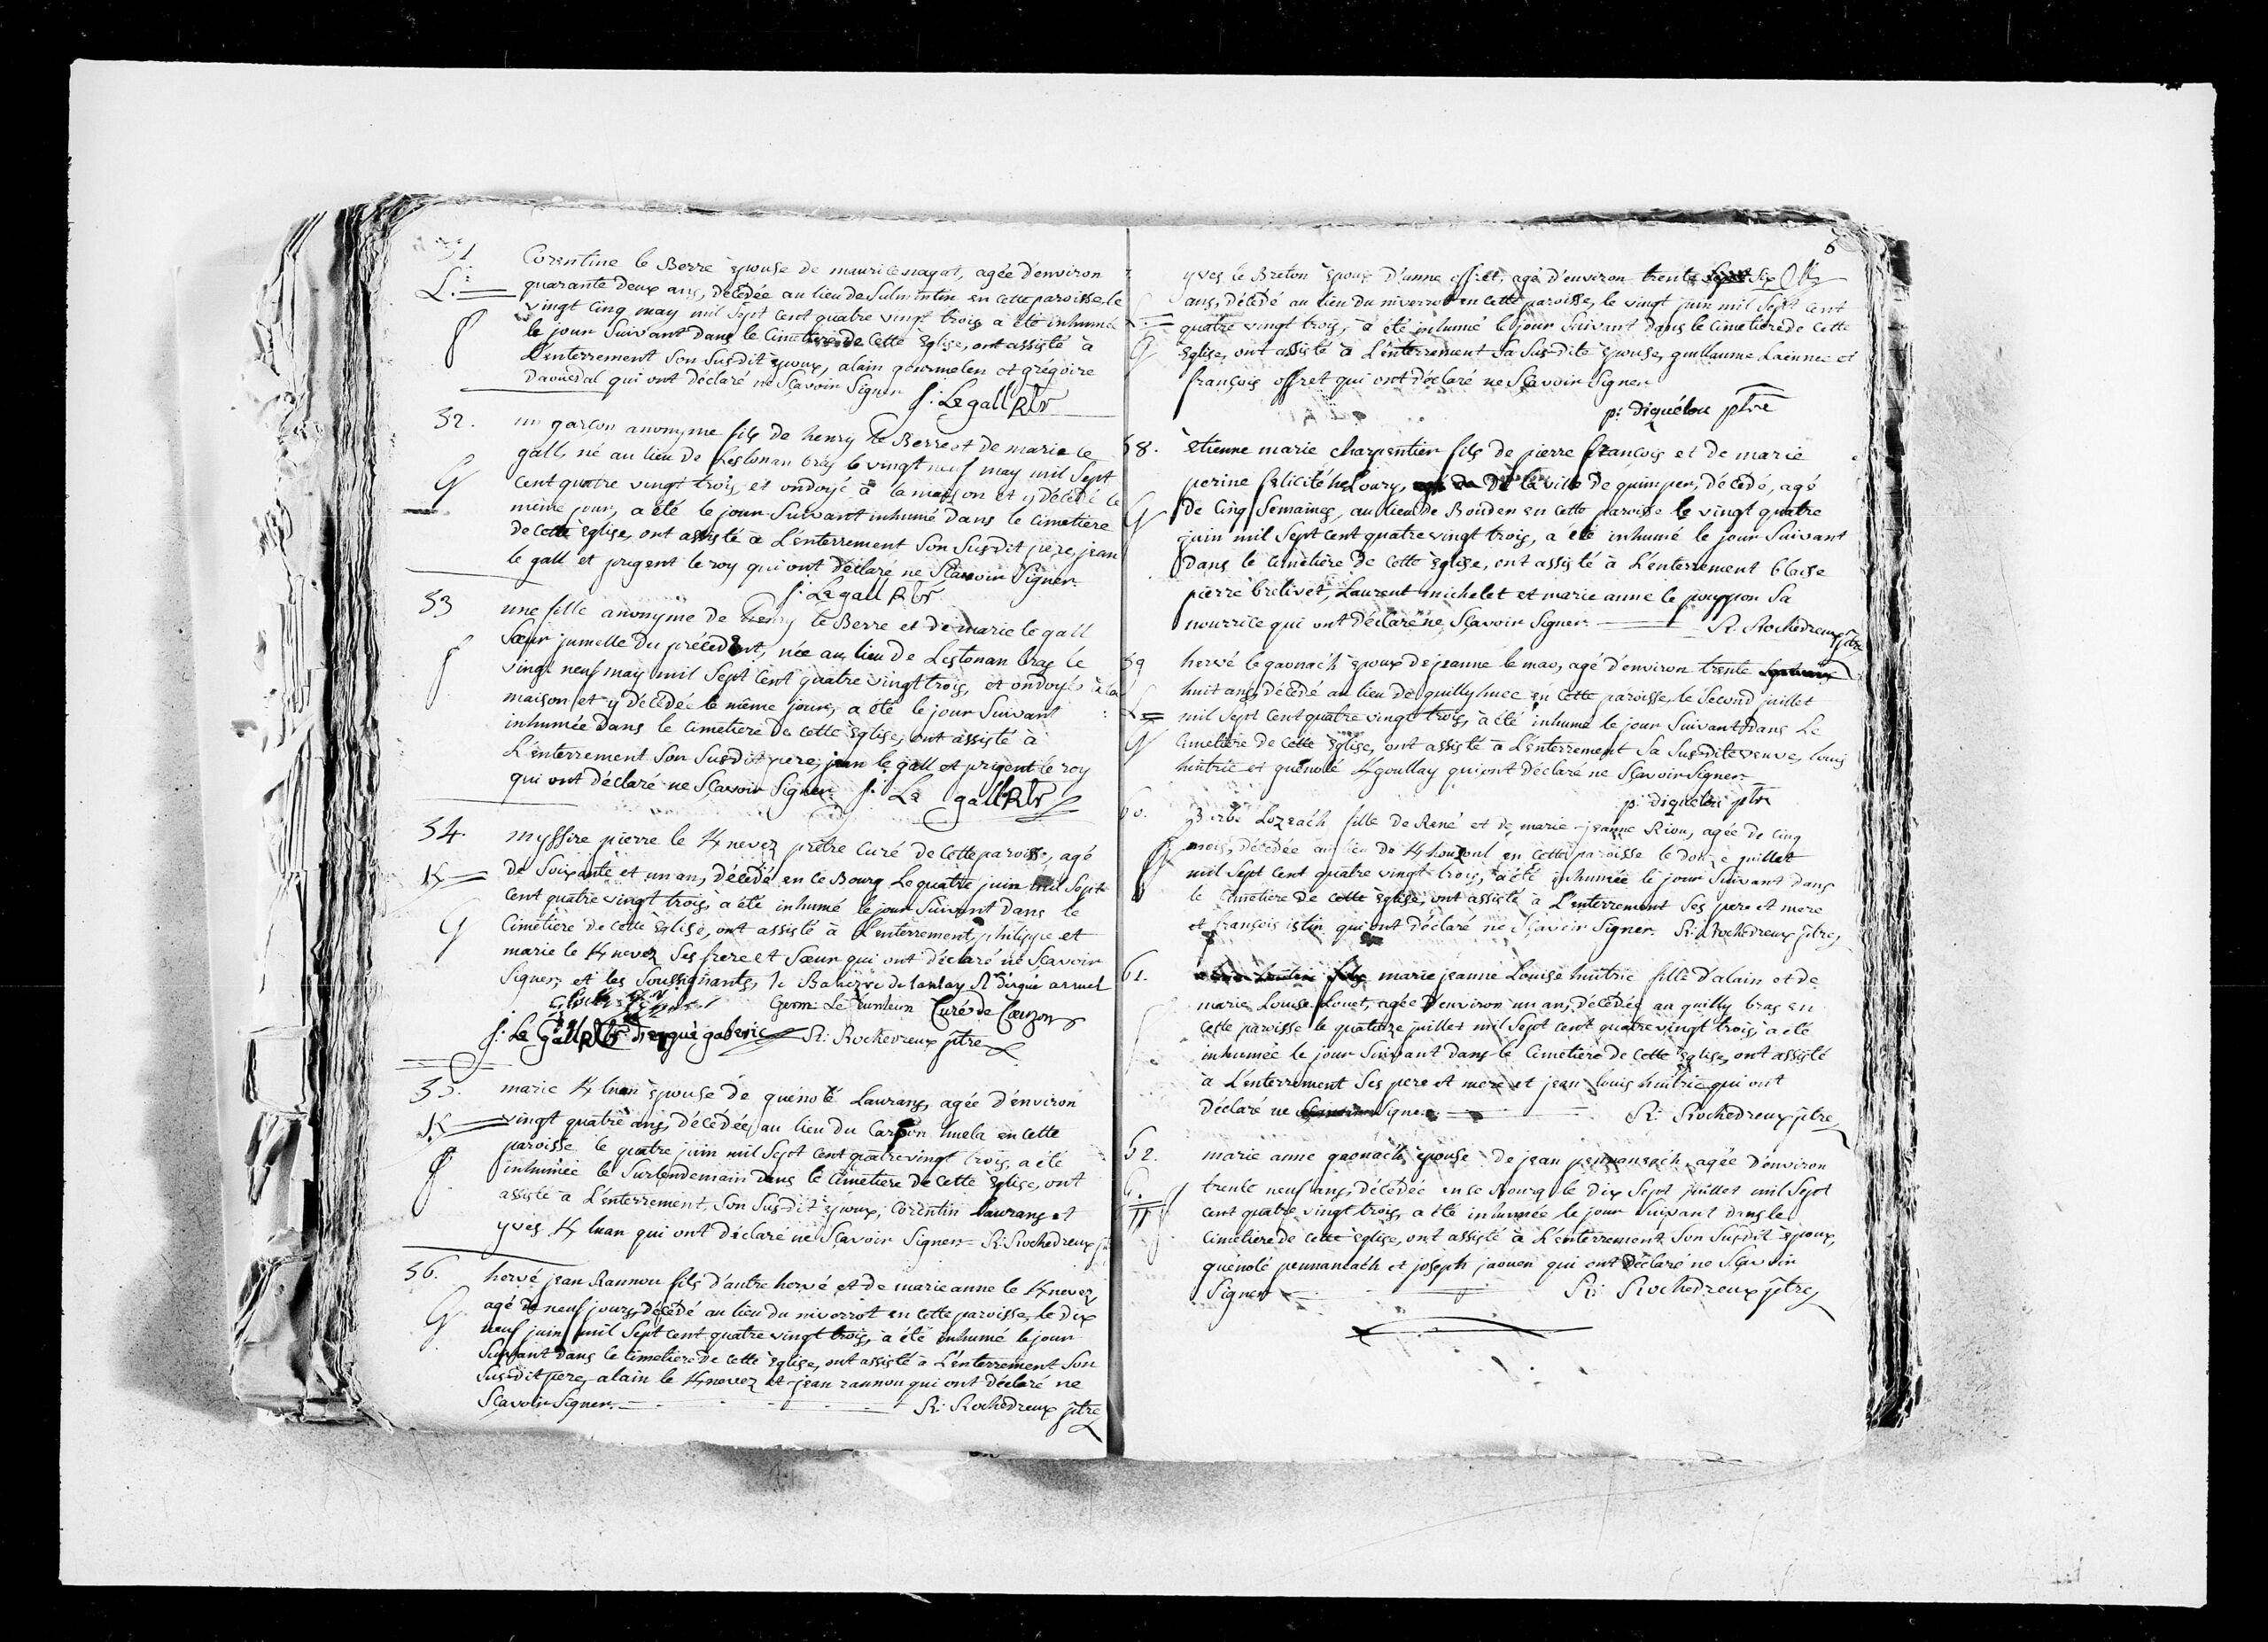 51
L.
Corentine le Berre epouse de maurice nagat, agée d'environ
quarante deux ans, décédée au lieu de Sulvintin en cette paroisse, le
vingt cinq may mil sept cent quatre vingt trois, a été inhumée
le jour Suivant dans le Cimetiere de Cette Eglise, ont assisté à
L'enterrement Son Susdit epoux, alain gourmelen et grégoire
Daouédal qui ont déclaré ne Sçavoir Signer
f: Le gall Rtr
52.
G
un garçon anonyme fils de henry le Berre et de marie le
gall, né au lieu de Lestonan bras le vingt neuf may mil Sept
Cent quatre vingt trois, et ondoyé à la maison et y décédé le
même jour, a été le jour Suivant inhumé dans le Cimetiere
de Cette Eglise, ont assisté à L'enterrement Son Susdit pere, jean
le gall et prigent le roy qui ont déclaré ne Sçavoir Signer.
f: Le gall Rtr
53
f
une fille anonyme de henry le Berre et de marie le gall
Sœur jumelle du précédent, née au lieu de Lestonan bras le
vingt neuf may mil Sept Cent quatre vingt trois, et ondoyée à la
maison et y décédée le même jour, a été le jour Suivant
inhumée dans le Cimetiere de cette Eglise, ont assisté à
L'enterrement Son Susdit pere, jean le gall et prigent le roy
qui ont déclaré ne Sçavoir Signer f: Le gall Rtr
54.
K
G
myssire pierre le K nevez prêtre Curé de Cette paroisse, agé
de Soixante et un ans, décédé en ce Bourg Le quatre juin mil Sept
Cent quatre vingt trois, a été inhumé le jour Suivant dans le
Cimetière de Cette Eglise, ont assisté à L'enterrement, philippe et
marie le K nevez Ses frere et Sœur qui ont déclaré ne Sçavoir
Signer, et les Soussignants, de lanlay R d'ergué armel
Germ: Le Curé de Cœuzon
f: Le Gall Rtr d'ergué gaberic R: Rochedreux ptre
55.
K
f.
marie K luan epouse de guénolé Laurans, agée d'environ
vingt quatre ans, décédée, au lieu du Carpon huela en cette
paroisse, le quatre juin mil Sept Cent quatre vingt trois, a été
inhumée le Surlendemain dans le Cimetiere de Cette Eglise, ont
assisté à L'enterrement, Son Susdit epoux, Corentin laurans et
yves K luan qui ont déclaré ne Sçavoir Signer R: Rochedreux
56.
G
hervé jean Rannou fils d'autre hervé et de marie anne le K nevez
agé de neuf jours, décédé au lieu du niverrot en cette paroisse, le dix
neuf juin mil Sept Cent quatre vingt trois, a été inhumé le jour
Suivant dans le Cimetiere de Cette Eglise, ont assisté à L'enterrement Son
Susdit pere, alain le K nevez et jean rannou qui ont déclaré ne
Sçavoir Signer. R: Rochedreux ptre
6
yves le Breton epoux d'anne offret, agé d'environ trente Sept Six
ans, décédé au lieu du niverrot en cette paroisse, le vingt juin mil Sept Cent
quatre vingt trois, a été inhumé le jour Suivant dans le Cimetiere de Cette
Eglise, ont assisté à L'enterrement Sa Susdite epouse, guillaume Laennec et
françois offret qui ont déclaré ne Sçavoir Signer
p: diquélou ptre
58.
G
Etienne marie Charpentier fils de pierre françois et de marie
perine félicité Loury, de la ville de quimper, décédé, agé
de Cinq Semaines, au lieu de Boiden en cette paroisse le vingt quatre
juin mil Sept Cent quatre vingt trois, a été inhumé le jour Suivant
dans le Cimètière de Cette Eglise, ont assisté à L'enterrement blaise
pierre brelivet, Laurent michelet et marie anne le pouppon Sa
nourrice qui ont déclaré ne Sçavoir Signer. R: Rochedreux ptre
59
L
G
hervé le gaonach epoux de jeanne le mao, agé d'environ trente
huit ans, décédé au lieu de quillyhuec en cette paroisse, le Second juillet
mil Sept Cent quatre vingt trois, a été inhumé le jour Suivant dans Le
Cimetiere de Cette Eglise, ont assisté à L'enterrement Sa Susdite veuve, louis
huitric et guénolé K goullay qui ont déclaré ne Sçavoir Signer
p: diquélou ptre
60.
f
Barbe Lozeach fille de René et de marie-jeanne Riou, agée de Cinq
mois, décédée au lieu de K houzoul en cette paroisse le douze juillet
mil Sept Cent quatre vingt trois, a été inhumée le jour Suivant dans
le Cimetiere de Cette Eglise, ont assisté à L'enterrement Ses pere et mere
et françois istin qui ont déclaré ne Sçavoir Signer. R: Rochedreux ptre
61.
marie jeanne Louise huitric fille d'alain et de
marie Louise Louet, agée d'environ un an, décédée au quilly bras en
Cette paroisse le quatorze juillet mil Sept cent quatre vingt trois, a été
inhumée le jour Suivant dans le Cimetiere de Cette Eglise, ont assisté
à L'enterrement Ses pere et mere et jean louis huitric qui ont
déclaré ne Sçavoir Signer. R: Rochedreux ptre
62.
G.
f
marie anne gaonach epouse de jean pennaneach, agée d'environ
trente neuf ans, décédée en ce Bourg le dix Sept juillet mil Sept
Cent quatre vingt trois, a été inhumée le jour Suivant dans le
Cimetiere de Cette Eglise, ont assisté à L'enterrement Son Susdit epoux,
guénolé pennaneach et joseph jaouen qui ont déclaré ne Sçavoir
Signer R: Rochedreux ptre